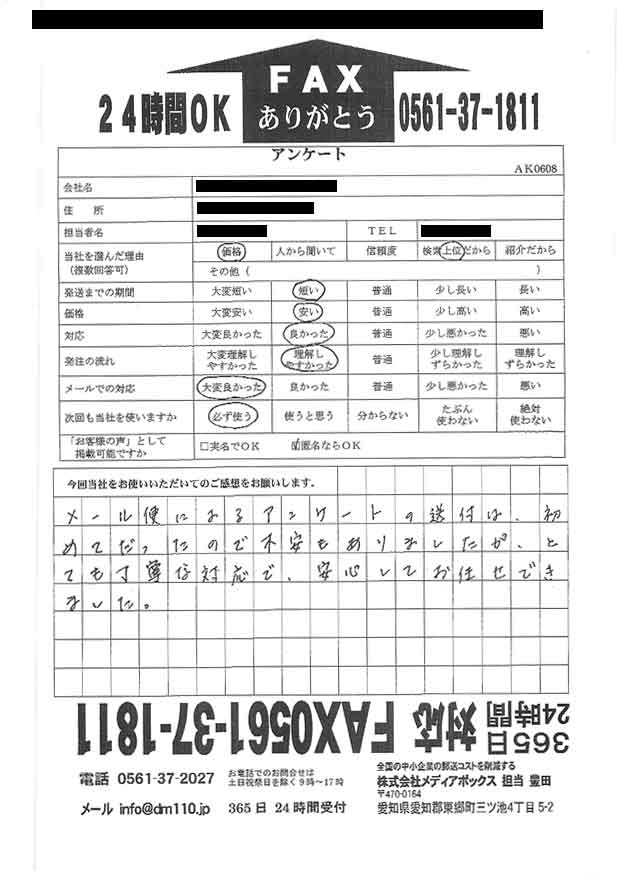 FAX
ありがとう
24時間OK
0561-37-1811
アンケート
AK0608
会社名
住 所
担当者名 TEL
当社を選んだ理由
(複数回答可)
価格 人から聞いて 信頼度 検索上位だから 紹介だから
その他 ( )
発送までの期間 大変短い 短い 普通 少し長い 長い
価格 大変安い 安い 普通 少し高い 高い
対応 大変良かった 良かった 普通 少し悪かった 悪い
発注の流れ 大変理解しやすかった 理解しやすかった 普通 少し理解しずらかった 理解しずらかった
メールでの対応 大変良かった 良かった 普通 少し悪かった 悪い
次回も当社を使いますか 必ず使う 使うと思う 分からない たぶん使わない 絶対使わない
「お客様の声」として
掲載可能ですか
□実名でOK 匿名ならOK
今回当社をお使いいただいてのご感想をお願いします。
メール便によるアンケートの送付は、初
めてだったので不安もありましたが、と
ても丁寧な対応で、安心してお任せでき
ました。
365日
24時間
対応 FAX0561-37-1811
電話 0561-37-2027
お電話でのお問合せは
土日祝祭日を除く9時~17時
メール info@dm110.jp 365日24時間受付
全国の中小企業の郵送コストを削減する
株式会社メディアボックス 担当 豊田
〒470-0164
愛知県愛知郡東郷町三ツ池4丁目5-2